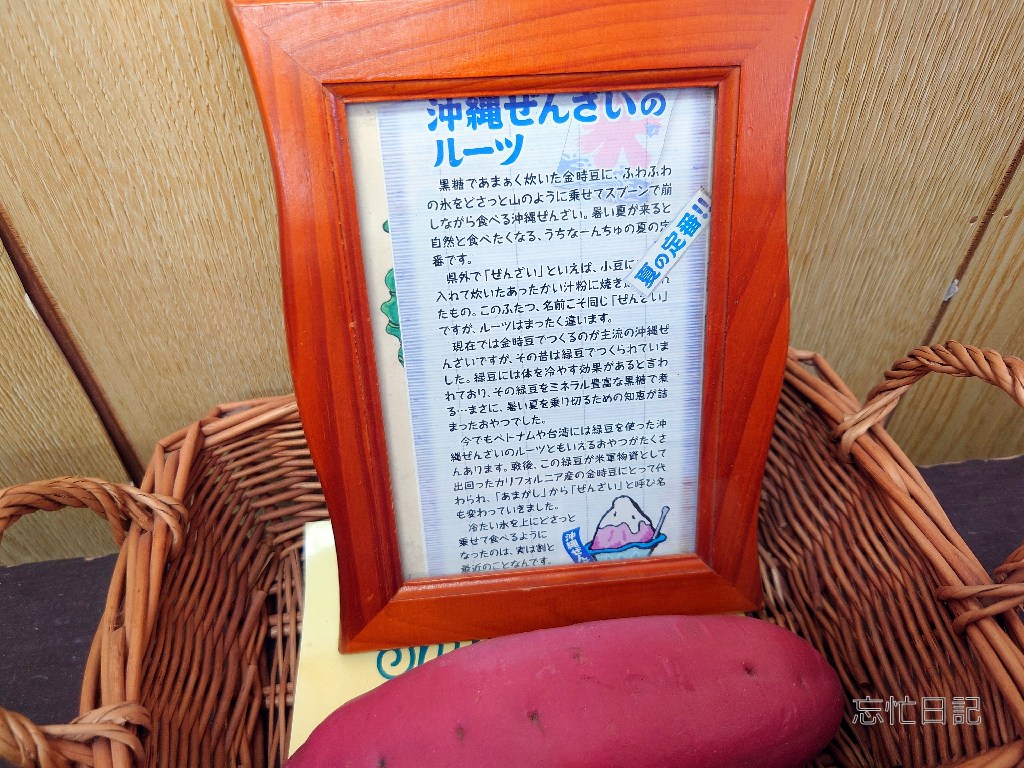 沖縄ぜんざいの
ルーツ
黒糖であまぁく炊いた金時豆に、ふわふわ
の氷をどさっと山のように乗せてスプーンで崩
しながら食べる沖縄ぜんざい。暑い夏が来ると
自然と食べたくなる、うちなーんちゅの夏の定
番です。
夏の定番!!
県外で「ぜんざい」といえば、小豆に
入れて炊いたあったかい汁粉に焼き
たもの。このふたつ、名前こそ同じ「ぜんざい」
ですが、ルーツはまったく違います。
現在では金時豆でつくるのが主流の沖縄ぜ
んざいですが、その昔は緑豆でつくられていま
した。緑豆には体を冷やす効果があると言わ
れており、その緑豆をミネラル豊富な黒糖で煮
る…まさに、暑い夏を乗り切るための知恵が詰
まったおやつでした。
今でもベトナムや台湾には緑豆を使った沖
縄ぜんざいのルーツともいえるおやつがたくさ
んあります。戦後、この緑豆が米軍物資として
出回ったカリフォルニア産の金時豆にとって代
わられ、「あまがし」から「ぜんざい」と呼び名
も変わっていきました。
冷たい氷を上にどさっと
乗せて食べるように
なったのは、実は割と
最近のことなんです。
沖縄ぜん
忘忙日記